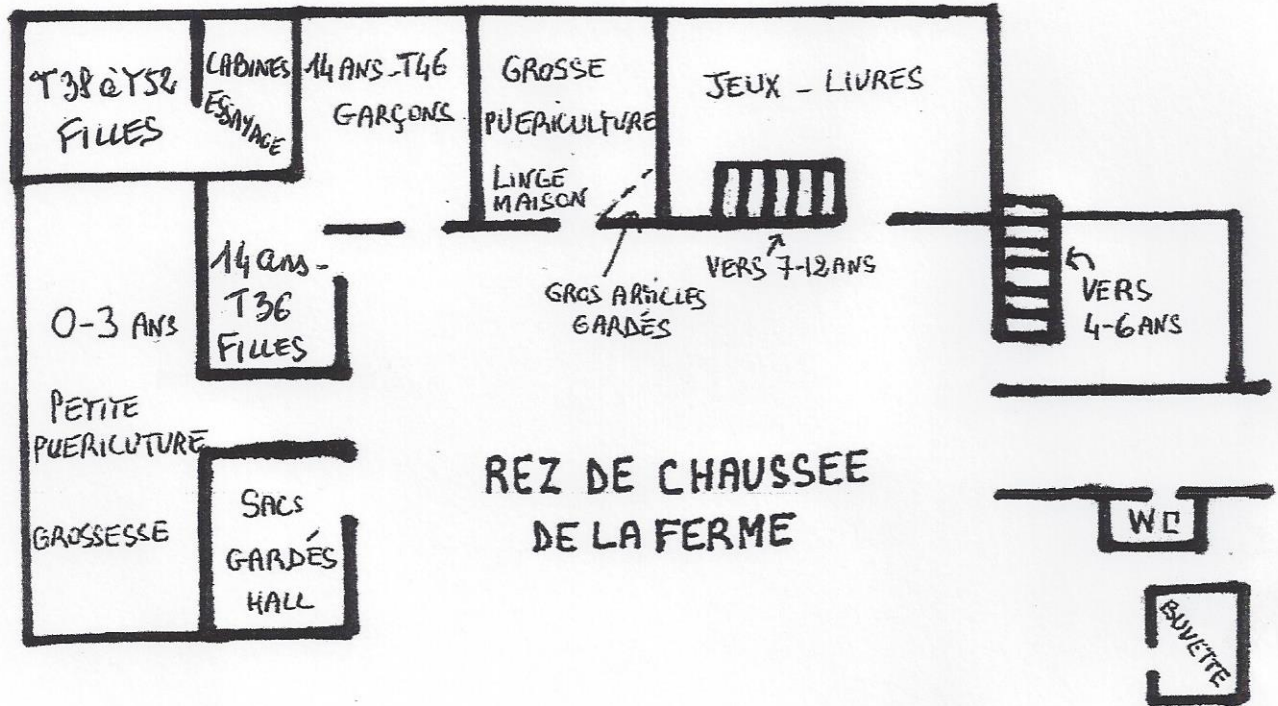 T38 à T52
FILLES
CABINES
ESSAYAGE
14 ANS - T46
GARÇONS
GROSSE
PUERICULTURE
LINGE
MAISON
JEUX - LIVRES
14 ans -
T36
FILLES
GROS ARTICLES
GARDÉS
VERS 7-12 ANS
VERS
4-6 ANS
0-3 ANS
PETITE
PUERICUTURE
GROSSESSE
SACS
GARDÉS
HALL
REZ DE CHAUSSEE
DE LA FERME
WC
BUVETTE